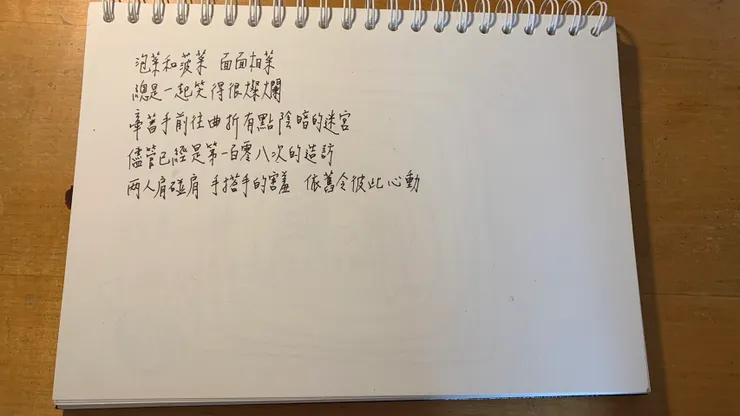 泡菜和菠菜 面面相菜
總是一起笑得很燦爛
牽著手前往曲折有點陰暗的迷宮
儘管已經是第一百零八次的造訪
兩人肩碰肩 手搭手的害羞 依舊令彼此心動